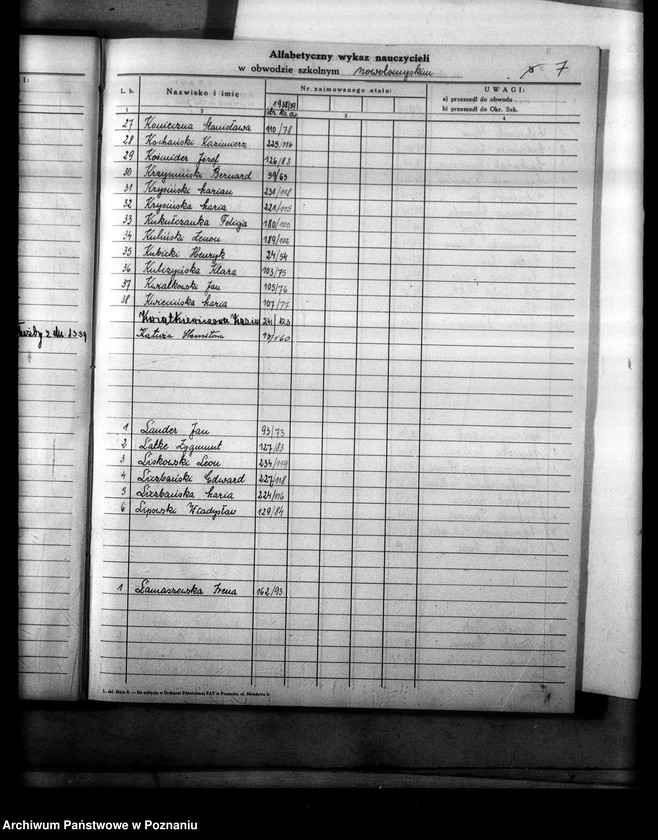 Alfabetyczny wykaz nauczycieli
w obwodzie szkolnym nowotomyskim 7
L. b. Nazwisko i imię Nr zajmowanego etatu: UWAGI:
a) przeszedł do obwodu
b) przeszedł do Okr. Szk.
1938/39
1 2 3 4
27 Konieczna Stanisława 110/78
28 Kochański Kazimierz 225/116
29 Kośmider Józef 126/83
30 Krzymiński Bernard 59/65
31 Krysiński Marian 231/118
32 Krysińska Maria 221/115
33 Kukulczanka Felicja 180/100
34 Kuliński Zenon 189/102
35 Kubicki Henryk 24/54
36 Kulczyńska Klara 103/75
37 Kwiatkowski Jan 105/76
38 Kwiecińska Maria 107/77
241/123
Kałuża
1 Lander Jan 93/73
2 Latke Zygmunt 127/83
3 Liskowski Leon 234/119
4 Liszbański Edward 227/118
5 Liszbańska Maria 224/116
6 Lipowski Władysław 129/84
1 Łamaszewska Irena 162/93
Do nabycia w Drukarni Państwowej PAT w Poznaniu, ul. Składowa
2 dn.
Archiwum Państwowe w Poznaniu